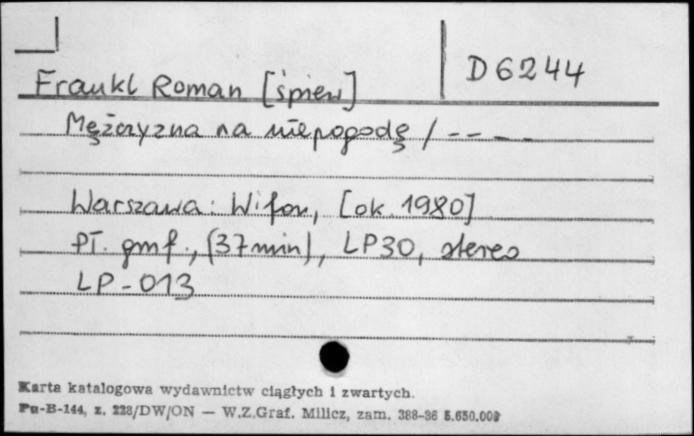 D 6244
Frankl Roman [śpiew]
Mężczyzna na niepogodę / -- - -
Warszawa: Wifon, [ok. 1980]
Pł. gmf., (37 min), LP30, stereo
LP-013
Karta katalogowa wydawnictw ciągłych i zwartych.
Pu-B-144, z. 228/DW/ON — W.Z.Graf. Milicz, zam. 388-86 5.650.000